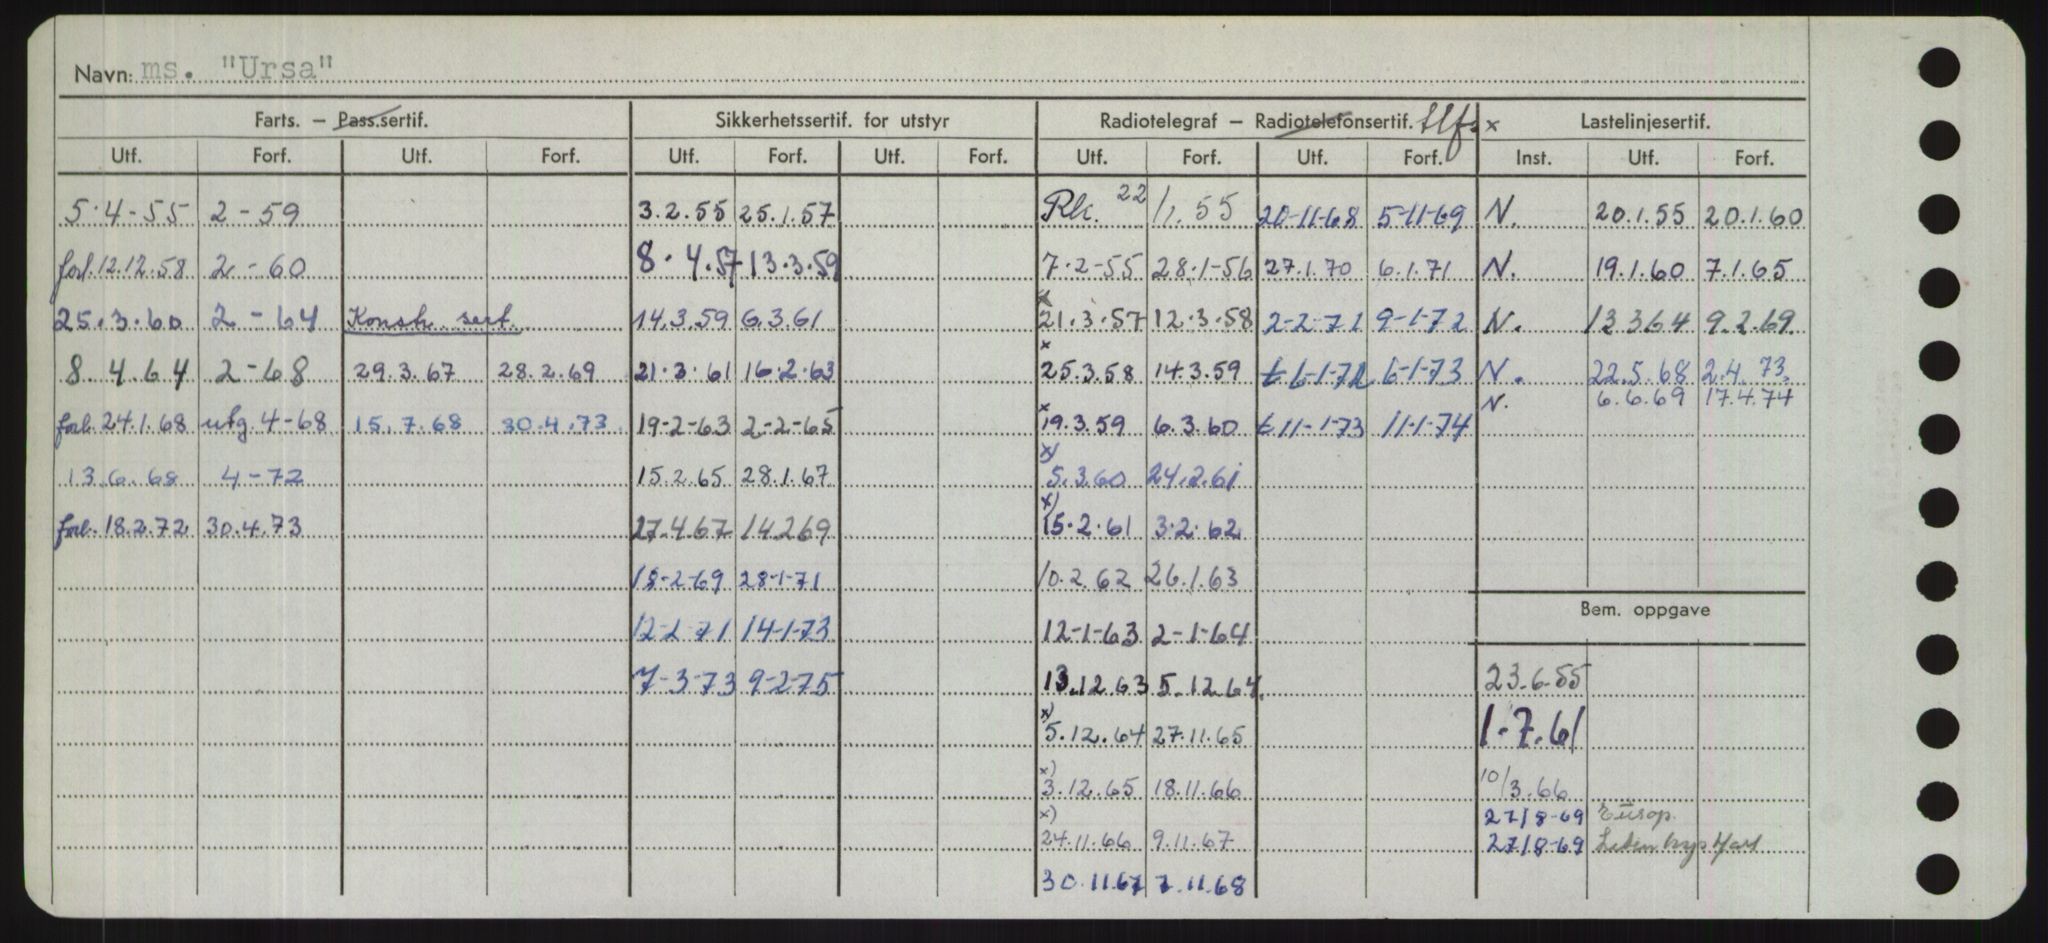 Navn: ms. "Ursa"
Farts. – Pass.sertif. Sikkerhetssertif. for utstyr Radiotelegraf – Radiotelefonsertif. tlf. x Lastelinjesertif.
Utf. Forf. Utf. Forf. Utf. Forf. Utf. Forf. Utf. Forf. Utf. Forf. Inst. Utf. Forf.
5.4-55 2-59 3.2.55 25.1.57 Rk. 22/1.55 20-11-68 5-11-69 N. 20.1.55 20.1.60
forl. 12.12.58 2-60 8.4.57 13.3.59 7.2-55 28.1-56 27.1.70 6.1.71 N. 19.1.60 7.1.65
25.3.60 2-64 Konstr. sert. 14.3.59 6.3.61 x 21.3.57 12.3.58 2-2-71 9-1-72 N. 12.3.64 9.2.69
8.4.64 2-68 29.3.67 28.2.69 21.3.61 16.2.63 x 25.3.58 14.3.59 t 6-1-72 6-1-73 N. 22.5.68 2.4.73.
N. 6.6.69 17.4.74
forl. 24.1.68 utg. 4-68 15.7.68 30.4.73 19-2-63 2-2-65 x 19.3.59 6.3.60 t 11-1-73 11-1-74
13.6.68 4-72 15.2.65 28.1.67 x) 5.3.60 24.2.61
forl. 18.2.72 30.4.73 27.4.67 14.2.69 x) 15.2.61 3.2.62
18-2-69 28-1-71 10.2.62 26.1.63
Bem. oppgave
12-2-71 14-1-73 12-1-63 2-1-64
7-3-73 9-2-75 13.12.63 5.12.64. 23.6.55
x) 5.12.64 27.11.65 1.7.61
x) 3.12.65 18.11.66 10/3.66
27/8-69 Europ.
x) 24.11.66 9.11.67 27/8-69
30.11.67 7.11.68